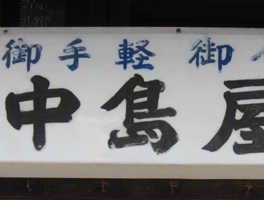 御手軽御
中島屋